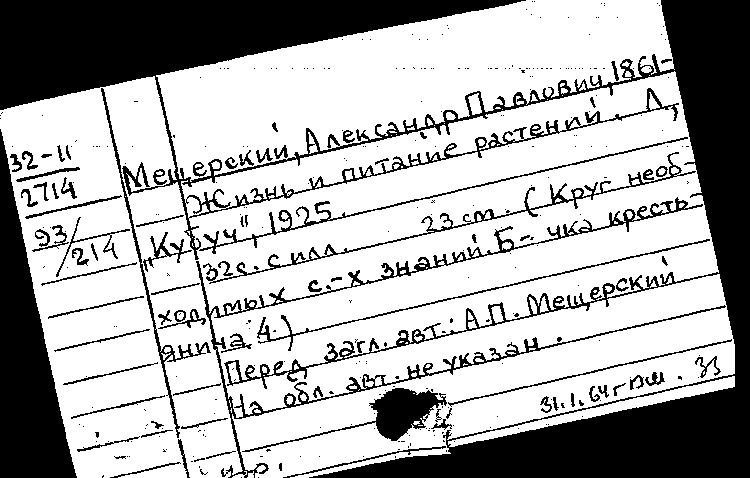 32-11
2714
93/214
Мещерский, Александр Павлович, 1861-
Жизнь и питание растений. Л,
„Кубуч", 1925.
32с. с илл. 23 см. (Круг необ-
ходимых с.-х. знаний. Б-чка кресть-
янина. 4.).
Перед загл. авт.: А.П. Мещерский
На обл. авт. не указан.
31.1.64г